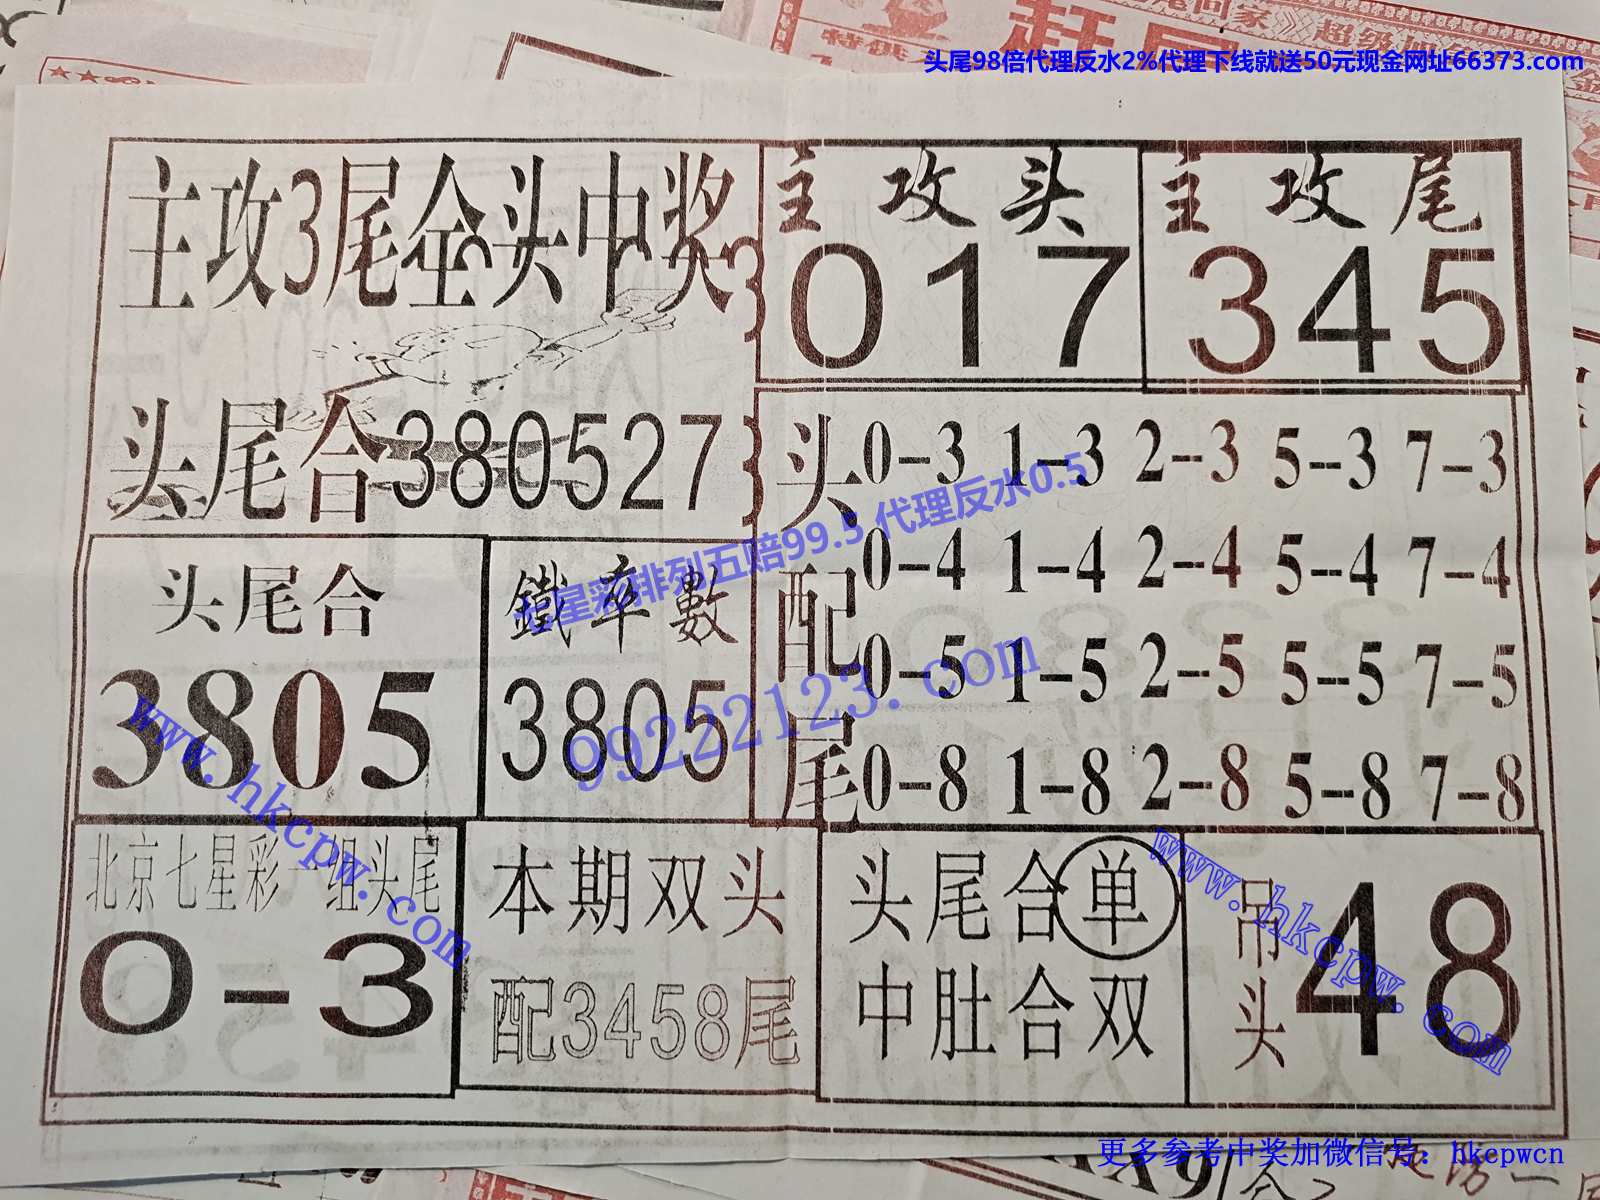 特供
回家
超级
头尾98倍代理反水2%代理下线就送50元现金网址66373.com
主攻3尾全头中奖
主攻头
017
主攻尾
345
头尾合380527
头配尾
0-3 1-3 2-3 5-3 7-3
0-4 1-4 2-4 5-4 7-4
0-5 1-5 2-5 5-5 7-5
0-8 1-8 2-8 5-8 7-8
七星彩排列五赔99.5 代理反水0.5
99222123.com
头尾合
3805
鐵率數
3805
www.hkcpw.com
北京七星彩一组头尾
0-3
本期双头
配3458尾
头尾合单
中肚合双
吊头
48
www.hkcpw.com
更多参考中奖加微信号: hkcpwcn